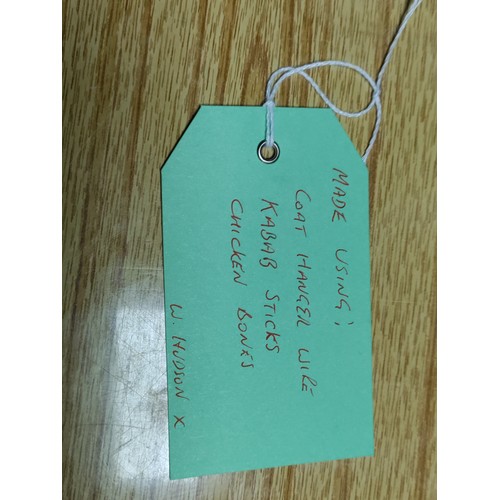 MADE USING;
COAT HANGER WIRE
KABAB STICKS
CHICKEN BONES
W. HUDSON X